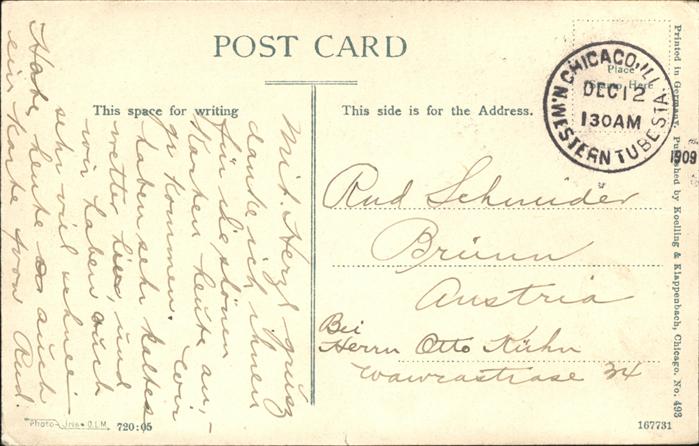 POST CARD
This space for writing
This side is for the Address.
Place
Stamp Here
CHICAGO, ILL.
DEC 12
130AM
1909
N.WESTERN TUBE STA.
Mit Herzl. grüsz
danke ich ihnen
für die
Karten heute an,-
zu kommen. wir
haben sehr kaltes
wetter hier, und
wir haben auch
sehr viel schnee
Habe heute auch
ein Karte von Rud.
Rud Schneider
Brünn
Austria
Bei
Herrn Otto Kühn
Wawrastrase 24
Printed in Germany. Published by Koelling & Klappenbach, Chicago. No. 493
Photo-Iris D.I.M. 720:05
167731